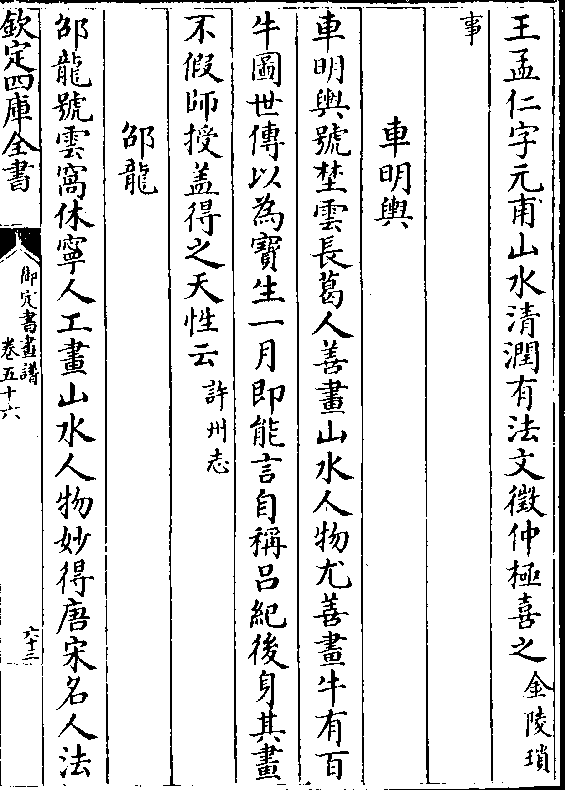 王孟仁字元甫山水清潤有法文徵仲極喜之金陵瑣
事
車明輿
車明輿號埜雲長葛人善畫山水人物尤善畫牛有百
牛圖世傳以為寶生一月即能言自稱呂紀後身其畫
不假師授盖得之天性云許州志
邵龍
邵龍號雲窩休寧人工畫山水人物妙得唐宋名人法
欽定四庫全書
御定書畫譜
卷五十六
六十三